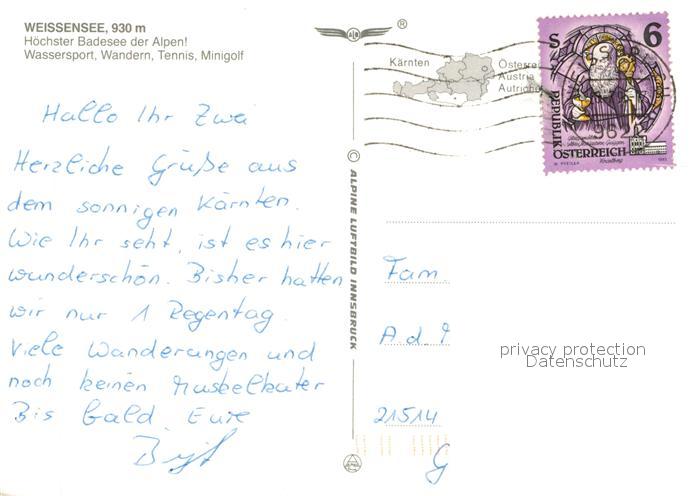 WEISSENSEE, 930 m
Höchster Badesee der Alpen!
Wassersport, Wandern, Tennis, Minigolf
Hallo Ihr Zwei
Herzliche Grüße aus
dem sonnigen Kärnten.
Wie Ihr seht, ist es hier
wunderschön. Bisher hatten
wir nur 1 Regentag.
Viele Wanderungen und
noch keinen Muskelkater
Bis bald. Eure
©ALPINE LUFTBILD INNSBRUCK
®
Kärnten
Österre
Austria
Autrich
S 6
REPUBLIK
ÖSTERREICH
Fam.
A.d.
21514
G
privacy protection
Datenschutz